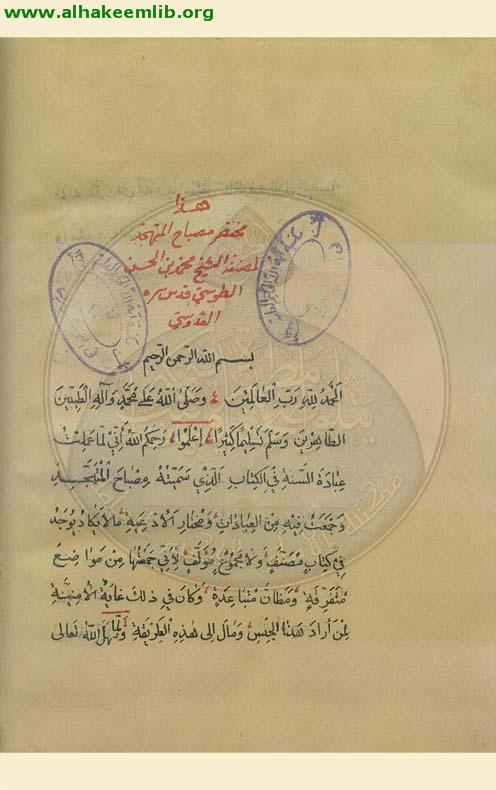 www.alhakeemlib.org
هذا
مختصر مصباح المتهجد
لمصنفه الشيخ محمد بن الحسن
الطوسي قدس سره
القدوسي
بسم الله الرحمن الرحيم
اَلحَمدُ لِلّهِ رَبِّ العالَمِينَ وَصَلَّى اللهُ عَلى مُحَمَّدٍ وَآلِهِ الطَّيِّبِينَ
الطّاهِرِينَ وَسَلَّمَ تَسلِيمًا كَثِيرًا اِعلَمُوا رَحِمَكُمُ اللهُ أَنِّي لَمّا عَمِلتُ
عِبادَةَ السَّنَةِ فِي الكِتابِ الَّذِي سَمَّيتُهُ مِصباحَ المُتَهَجِّدِ
وَجَمَعتُ فِيهِ مِنَ العِباداتِ وَمُختارِ الاَدعِيَةِ مالا يَكادُ يُوجَدُ
فِي كِتابٍ مُصَنَّفٍ وَلا مَجمُوعٍ مُؤَلَّفٍ لِأَنِّي جَمَعتُها مِن مَواضِعَ
مُتَفَرِّقَةٍ وَمَظانَّ مُتَباعِدَةٍ وَكانَ فِي ذلِكَ غايَةُ الاُمنِيَّةِ
لِمَن أَرادَ هَذا الجِنسَ وَمالَ اِلى هذِهِ الطَّرِيقَةِ وَلَمّا سَهَّلَ اللهُ تَعالى